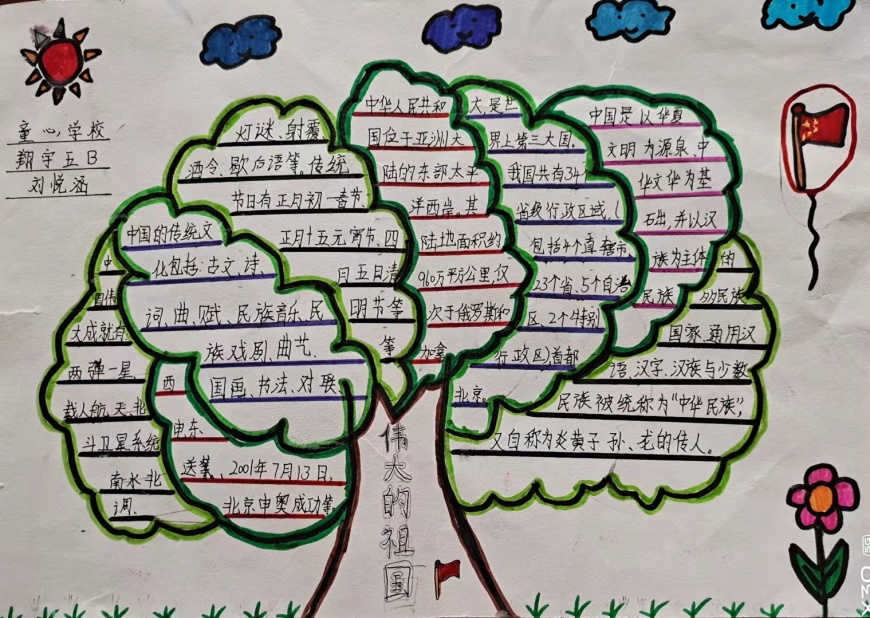 童心学校
翔宇五B
刘悦涵
中国的传统文
化包括:古文、诗、
词、曲、赋、民族音乐、民
族戏剧、曲艺、
国画、书法、对联、
灯谜、射覆、
酒令、歇后语等。传统
节日有正月初一春节、
正月十五元宵节、四
月五日清
明节等
等
中华人民共和
国位于亚洲大
陆的东部太平
洋西岸。其
陆地面积约
960万平方公里,仅
次于俄罗斯和
加拿
大是世
界上第三大国,
我国共有34个
省级行政区域,(
包括4个直辖市、
23个省、5个自治
区、2个特别
行政区)首都
北京。
中国是以华夏
文明为源泉、中
华文华为基
石出,并以汉
族为主体的
民族多民族
国家,通用汉
语、汉字、汉族与少数
民族被统称为“中华民族”,
又自称为炎黄子孙、龙的传人。
大成就有
两弹一星、
载人航天、北
斗卫星系统
南水北
调、
西
电东
送等、2001年7月13日,
北京申奥成功等。
伟大的祖国